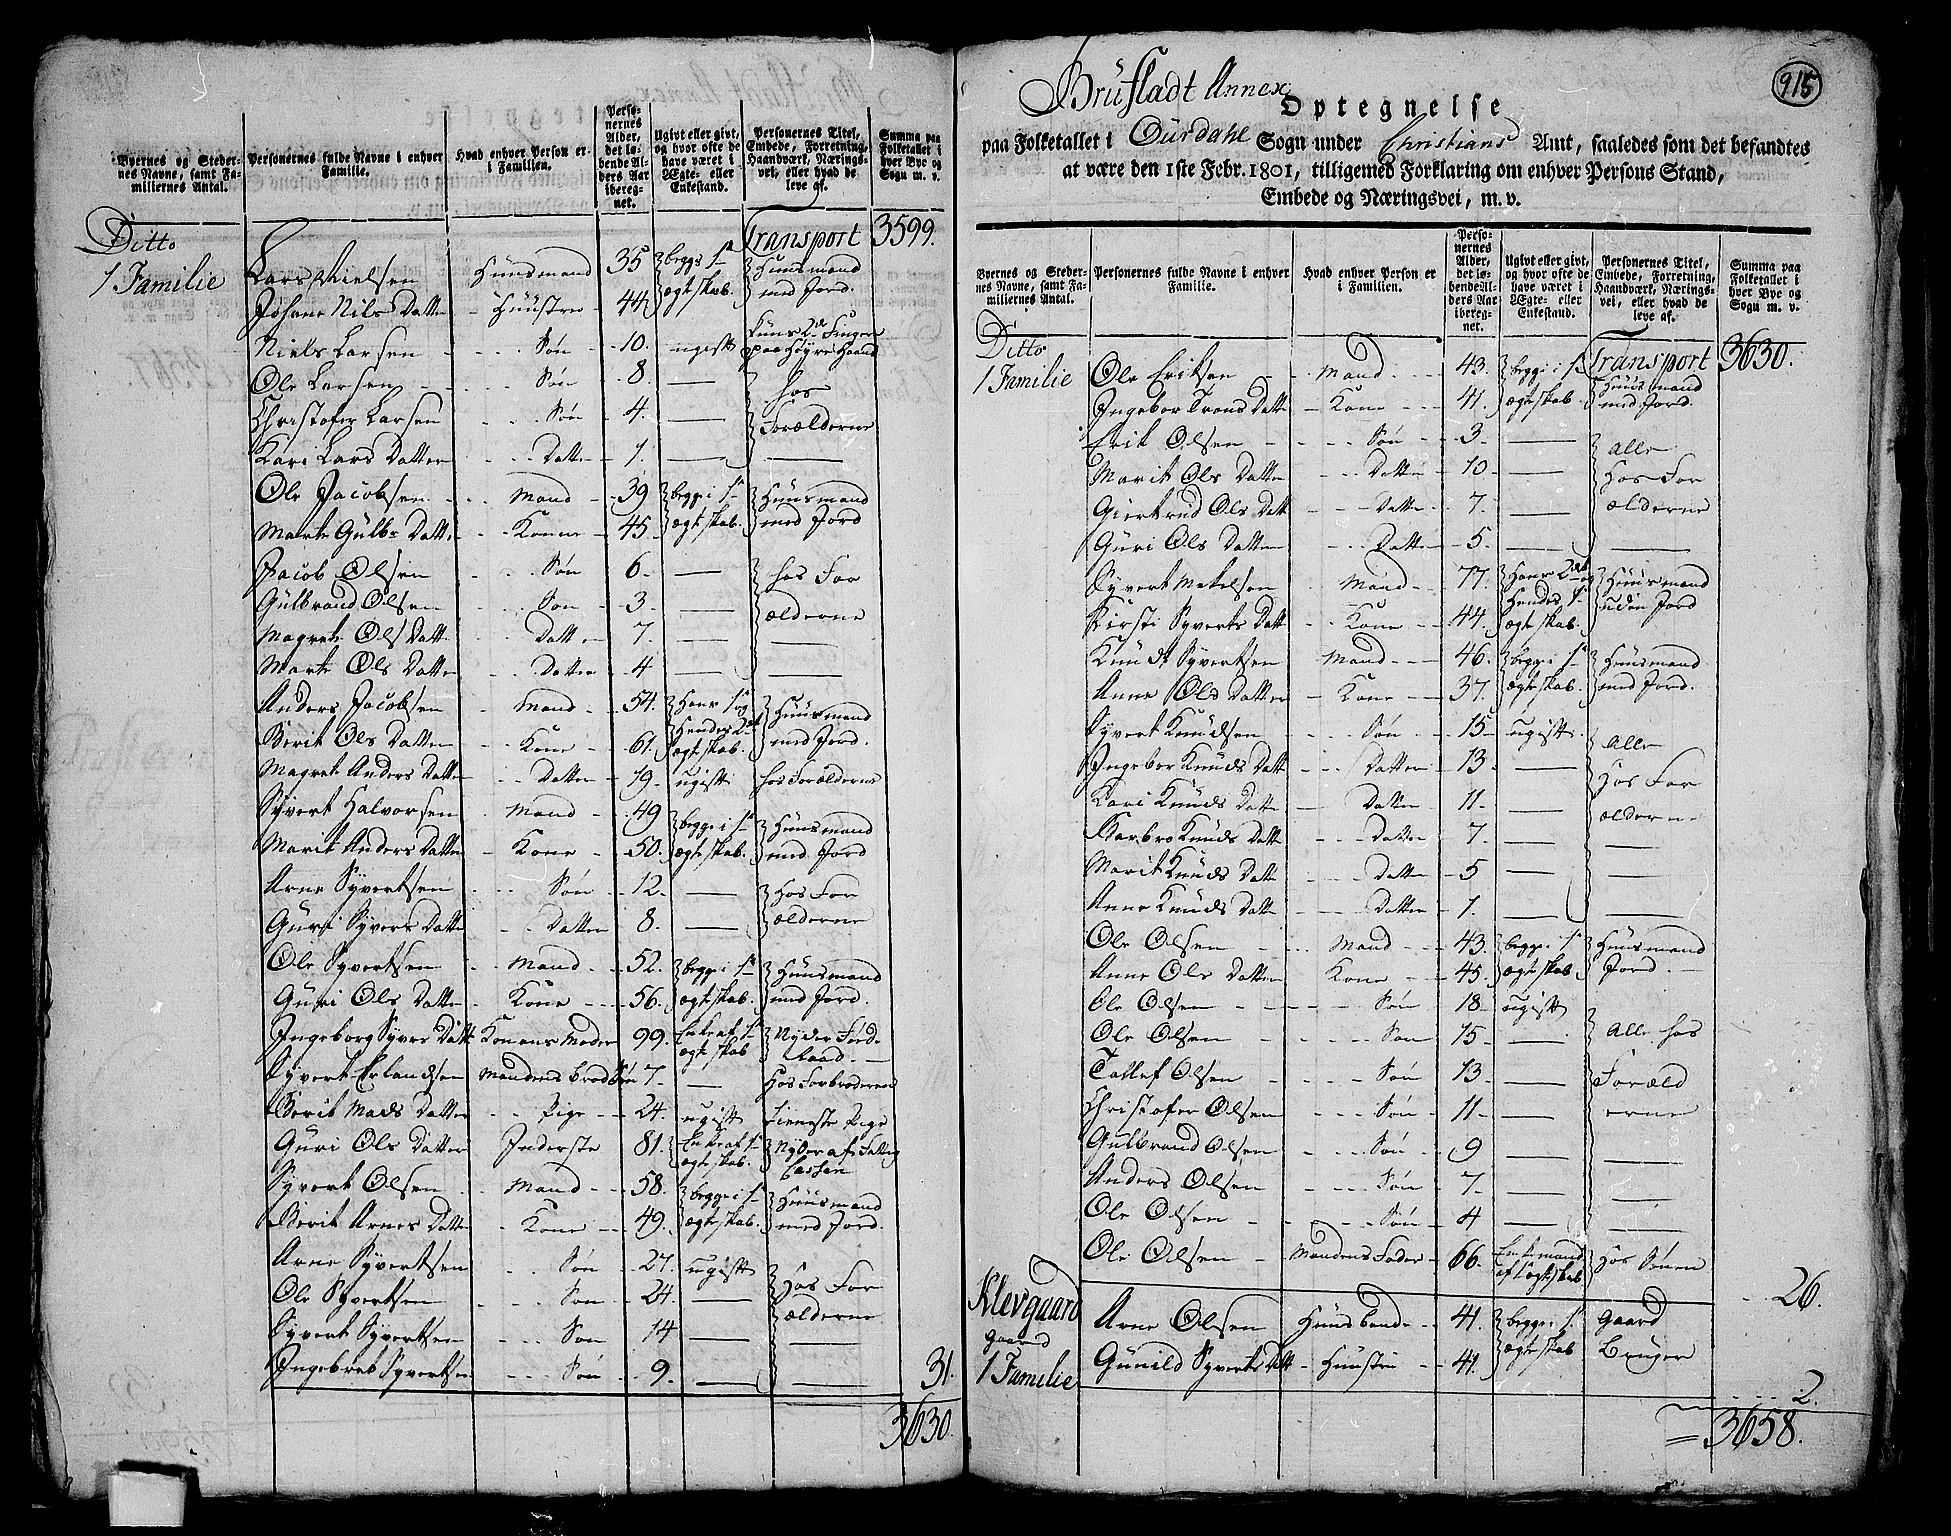 Byernes og Steder-
nes Navne, samt Fa-
miliernes Antal.
Personernes fulde Navne i enhver
Familie.
Hvad enhver Person er
i Familien.
Perso-
nernes
Alder,
det lø-
bende Al-
ders Aar
iberegnet.
Ugivt eller givt,
og hvor ofte de
have været i
Ægte- eller
Enkestand.
Personernes Titel,
Embede, Forretning,
Haandværk, Nærings-
vei, eller hvad de
leve af.
Summa paa
Folketallet i
hver Bye og
Sogn m. v.
Ditto Transport 3599.
1 Familie Lars Nielsen Huusmand 35 begge i 1te Huusmand
Johane Nils Datter - Huustrue 44 ægteskab med Jord.
Niels Larsen - - - Søn - 10. ugift kuns 2de Fingre paa Høyre Haand
Ole Larsen - - - Søn - 8. — hos
Christofer Larsen - - - Søn - 4. — Forælderne
Kari Lars Datter - - - Datter - 1. — —
Ole Jacobsen - - - Mand - 39 begge i 1te Huusmand
Marte Gulbr Datter - Konne - 45. ægteskab. med Jord
Jacob Olsen - - - Søn - 6. — hos For
Gulbrand Olsen - - Søn - 3. — ælderne
Magrete Ols Datter - - Datter - 7. — —
Marte Ols Datter - - Datter - 4 — —
Anders Jacobsen - Mand - 54. Hans 1te og Huusmand
Berit Ols Datter - - Kone - 61. Hendes 2det ægteskab. med Jord.
Magrete Anders Datter - - Datter - 19. ugift hos Forælderne
Syvert Halvorsen - Mand - 49 begge i 1te Huusmand
Marit Anders Datter - Kone - 50. ægteskab. med Jord
Arne Syvertsen - - - Søn - 12. — Hos For
Guri Syvers Datter - - Datter 8. — ælderne
Ole Syvertsen - - Mand - - 52. begge i 1te Huusmand
Guri Ols Datter - Kone - - - 56. ægteskab. med Jord.
Ingeborg Syvers Datter Konens Moder 99. Enke af 1te ægteskab Nyder Føderaad. —
Syvert Erlandsen Mandens brodSøn 7. — Hos Forbroderen
Berit Mads Datter - - Pige - - 24. ugift Tieneste Pige
Guri Ols Datter Inderste 81. Enke af 1te ægteskab. Nyder af Fattig Cassen
Syvert Olsen - - Mand - - 58. begge i 1te Huusmand
Berit Arnes Datter - Kone - - 49. ægteskab. med Jord.
Arne Syvertsen - - Søn - - 27. ugift
Ole Syvertsen - - - Søn - - 24. — Hos For
Syvert Syvertsen - - - Søn - - 14 — ælderne
Ingebret Syvertsen - - - Søn - - 9. — — 31.
3630.
915
Brufladt Annex
Optegnelse
paa Folketallet i Ourdahl Sogn under Christians Amt, saaledes som det befandtes
at være den 1ste Febr. 1801, tilligemed Forklaring om enhver Persons Stand,
Embede og Næringsvei, m. v.
Byernes og Steder-
nes Navne, samt Fa-
miliernes Antal.
Personernes fulde Navne i enhver
Familie.
Hvad enhver Person er
i Familien.
Perso-
nernes
Alder,
det lø-
bende Al-
ders Aar
iberegnet.
Ugivt eller givt,
og hvor ofte de
have været i
Ægte- eller
Enkestand.
Personernes Titel,
Embede, Forretning,
Haandværk, Nærings-
vei, eller hvad de
leve af.
Summa paa
Folketallet i
hver Bye og
Sogn m. v.
Ditto Transport 3630.
1 Familie Ole Eriksen - - Mand - - - 43. begge i 1te Huusmand
Ingebor Trons Datter - Kone - - - 41. ægteskab med Jord.
Erik Olsen - - - - Søn - - 3. — alle
Marit Ols Datter - - - Datter - 10 — Hos For
Giertrud Ols Datt - - - Datter - 7. — ælderne
Guri Ols Datter - - - Datter - 5. — —
Syvert Mekelsen - Mand - - 77. Hans 2det og Huusmand
Kirsti Syverts Datt - - Kone - - 44. Hendes 1te ægteskab. uden Jord
Knudt Syvertsen Mand - - 46. begge i 1te Huusmand
Anne Ols Datter - Kone - - 37. ægteskab. med Jord.
Syvert Knudsen - - Søn - 15 ugift.
Ingebor Knuds Datt - - - Datter - 13 — Alle
Kari Knuds Datter - Datter - 11 — Hos For
Barbro Knuds Datt - - - Datter - 7 — ælderne
Marit Knuds Datt - - - Datter - 5 — —
Anne Knuds Datt - - - Datter - 1. — —
Ole Olsen - - Mand - - - 43. begge i 1te Huusmand
Anne Ols Datter Kone - - - 45. ægteskab Jord. —
Ole Olsen - - - - Søn - - 18 ugift
Ole Olsen - - - Søn - - 15 — Alle hos
Tollef Olsen - - - Søn - - 13 — Foræld
Christofer Olsen - - - Søn - - 11 — erne
Gulbrand Olsen - - - Søn - - 9 — —
Anders Olsen - - - - Søn - - 7. — —
Ole Olsen - - - - Søn - - 4 — —
Ole Olsen - Mandens Fader - 66. Enkemand af 1 ægteskab hos Sønen
- - 26.
Klevgaard
Gaard
1 Familie
Arne Olsen Huusbonde - 41. begge i 1. Gaard
Gunild Syverts Datt - Huustru - - 41. ægteskab Bruger
- - - - 2.
3658.